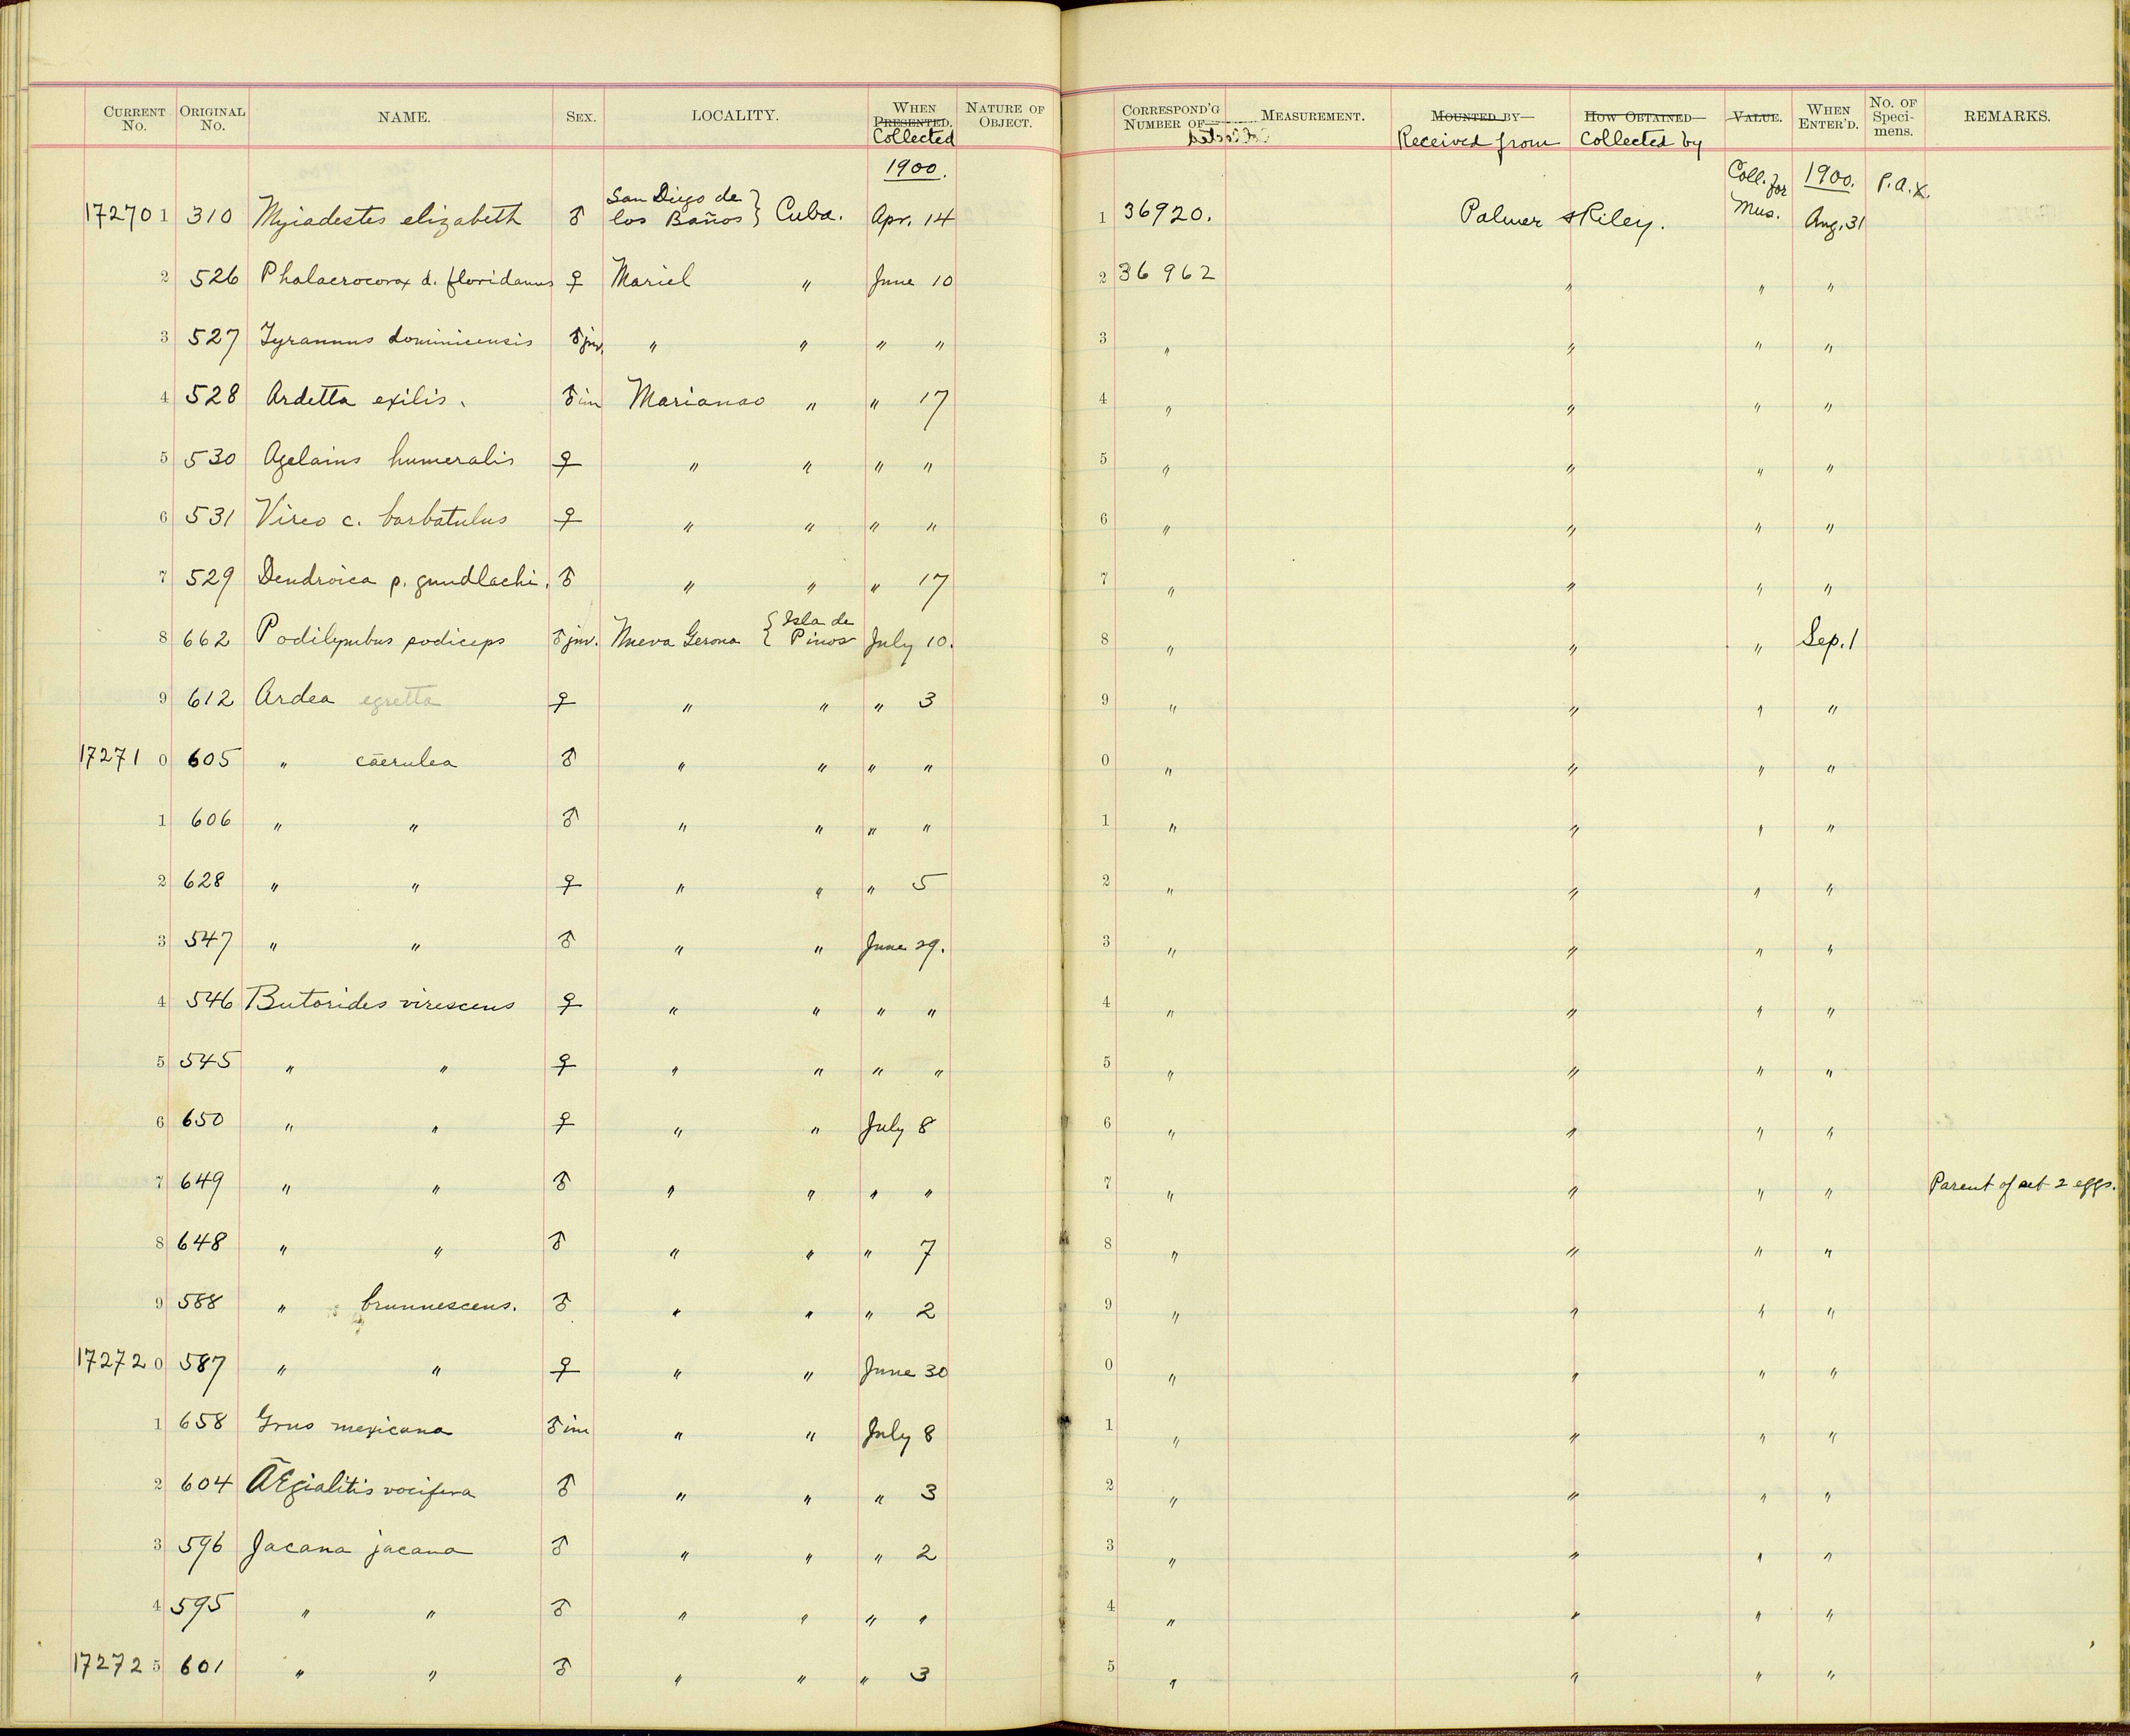 CURRENT No. ORIGINAL No. NAME. SEX. LOCALITY. WHEN PRESENTED. Collected NATURE OF OBJECT. CORRESPOND'G NUMBER OF MEASUREMENT. MOUNTED BY Received from HOW OBTAINED Collected by VALUE. WHEN ENTER'D. No. OF Speci-mens. REMARKS.
1900. Coll. for Mus. 1900. P.A.X.
172701 310 Myiadestes elizabeth ♂ San Diego de los Baños } Cuba. Apr. 14 1 36920. Palmer & Riley. Aug. 31
2 526 Phalacrocorax d. floridanus ♀ Mariel " June 10 2 36962 " " "
3 527 Tyrannus dominicensis ♂ juv. " " " " 3 " " " "
4 528 Ardetta exilis. ♂ im Marianao " " 17 4 " " " "
5 530 Agelaius humeralis ♀ " " " " 5 " " " "
6 531 Vireo c. barbatulus ♀ " " " " 6 " " " "
7 529 Dendroica p. gundlachi. ♂ " " " 17 7 " " " "
8 662 Podilymbus podiceps ♂ juv. Nueva Gerona { Isla de Pinos July 10. 8 " " " Sep. 1
9 612 Ardea egretta ♀ " " " 3 9 " " " "
172710 605 " cærulea ♂ " " " " 0 " " " "
1 606 " " ♂ " " " " 1 " " " "
2 628 " " ♀ " " " 5 2 " " " "
3 547 " " ♂ " " June 29. 3 " " " "
4 546 Butorides virescens ♀ " " " " 4 " " " "
5 545 " " ♀ " " " " 5 " " " "
6 650 " " ♀ " " July 8 6 " " " "
7 649 " " ♂ " " " " 7 " " " " Parent of set 2 eggs.
8 648 " " ♂ " " " 7 8 " " " "
9 588 " brunnescens. ♂ " " " 2 9 " " " "
172720 587 " " ♀ " " June 30 0 " " " "
1 658 Grus mexicana ♂ im " " July 8 1 " " " "
2 604 Ægialitis vocifera ♂ " " " 3 2 " " " "
3 596 Jacana jacana ♂ " " " 2 3 " " " "
4 595 " " ♂ " " " " 4 " " " "
172725 601 " " ♂ " " " 3 5 " " " "